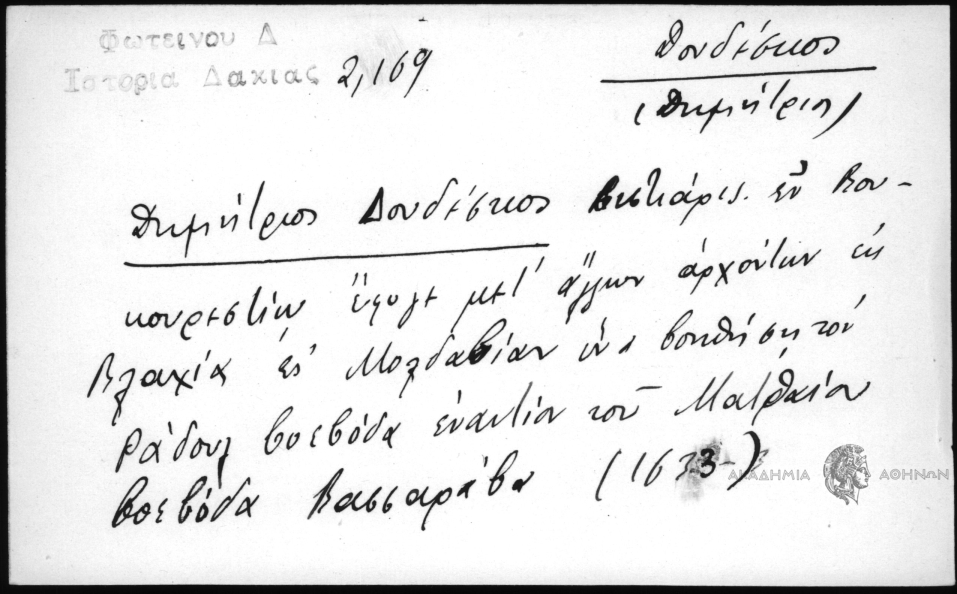 Φωτεινου Δ
Ιστορια Δακιας 2,169
Δουδέσκος
(Δημήτριος)
Δημήτριος Δουδέσκος βιστιάρις. ἐν Βου-
κουρεστίῳ ἔφυγε μετ' ἄλλων ἀρχόντων ἐκ
Βλαχία εἰς Μολδαβίαν ἵνα βοηθήση τὸν
Ράδουλ βοεβόδα ἐναντίον τοῦ Ματθαίου
βοεβόδα Βασσαράβα (1633-)
ΑΚΑΔΗΜΙΑ ΑΘΗΝΩΝ